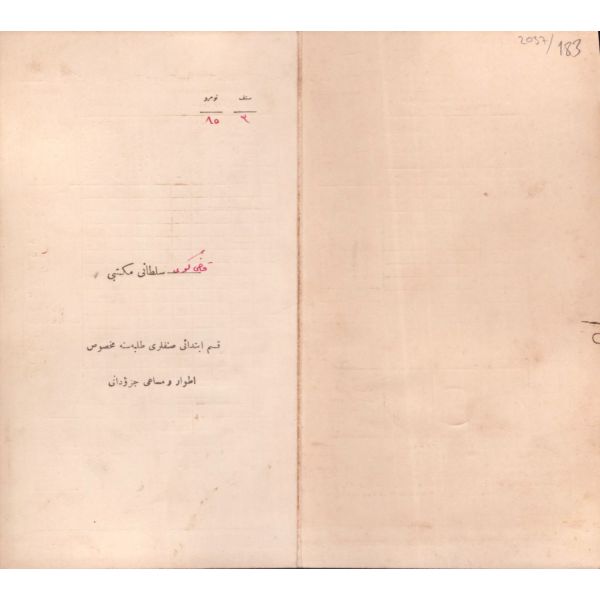 2037/183
سنف نومرو
٢ ٨٥
قاضی كوی سلطانی مكتبی
قسم ابتدائی صنفلری طلبه سنه مخصوص
اطوار و مساعی جزؤدانی